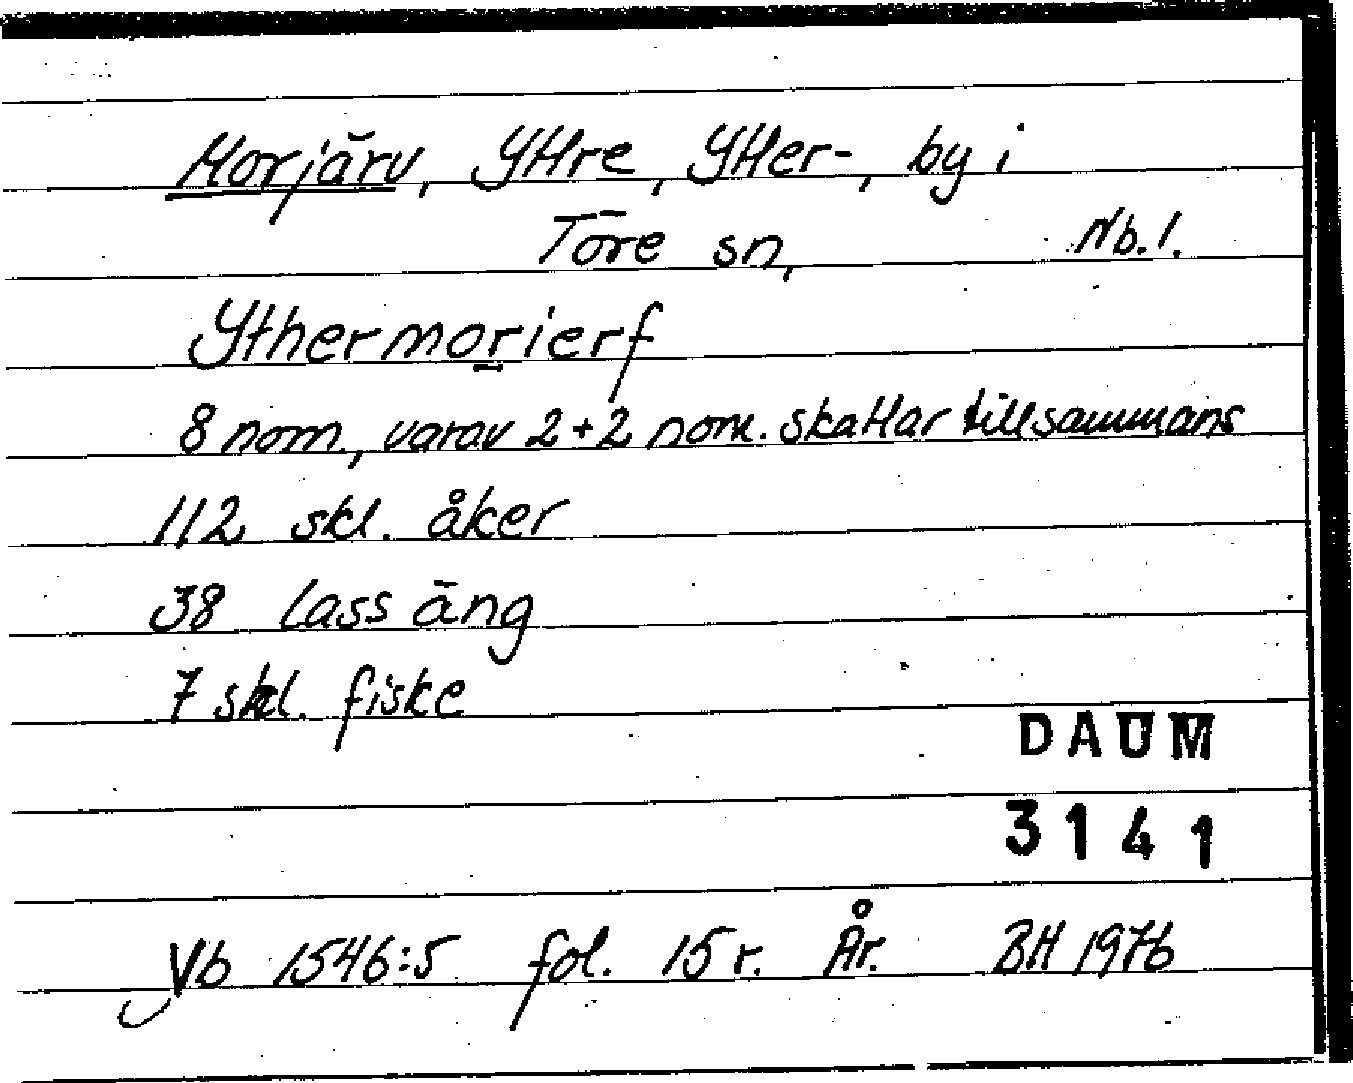 Morjärv, Yttre, Ytter-, by i
Töre sn, Nb. l.
Ythermorierf
8 nom., varav 2+2 nom. skattar tillsammans
112 skl. åker
38 lass äng
7 skl. fiske
DAUM
3141
Vb 1546:5 fol. 15 r. År. BH 1976